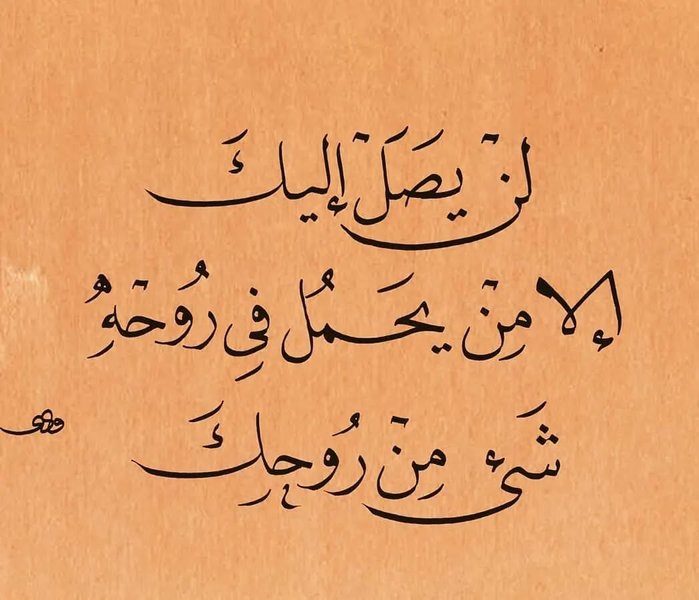 لنْ يصَلَ إليكَ
إلا مِنْ يحَمُل فِى رُوُحهِ
شَئ مِنْ رُوُحِكَ